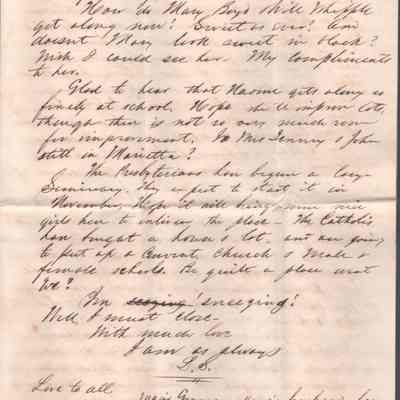 How do Mary Boyd & Will Whipple
get along now? Sweet as ever? And
doesn't Mary look sweet in black?
Wish I could see her. My compliments
to her.
Glad to hear that Naomi gets along so
finely at school. Hope she'll improve lots,
though there is not so very much room
for improvement. Is Mrs Tenney & John
still in Marietta?
The Presbyterians have begun a
Seminary. They expect to start it in
November. Hope it will bring some nice
girls here to enliven the place. The Catholics
have bought a house & lot, and are going
to put up a Convent, Church & male &
female schools. Be quite a place wont
we?
I'm sneezing!
Well I must close.
With much love
I am as always
L.S.
Love to all